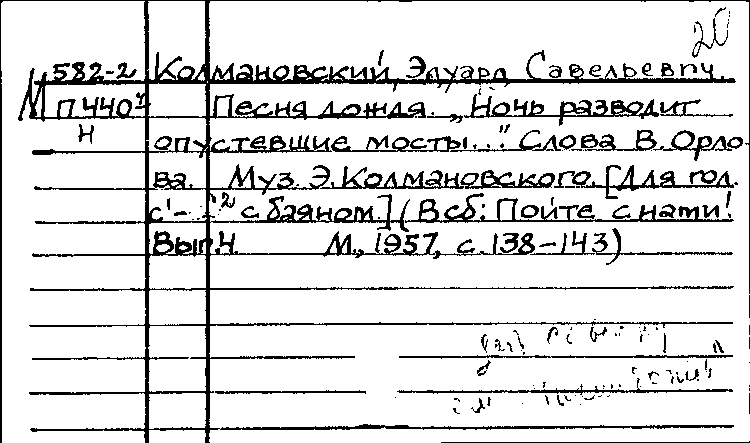 20
М 582-2 Колмановский, Эдуард Савельевич.
П 440ч Песня дождя. „Ночь разводит
Н опустевшие мосты..." Слова В. Орло-
ва. Муз. Э. Колмановского. [Для гол.
с баяном] (В сб: Пойте с нами!
Вып. 4. М., 1957, с. 138-143)